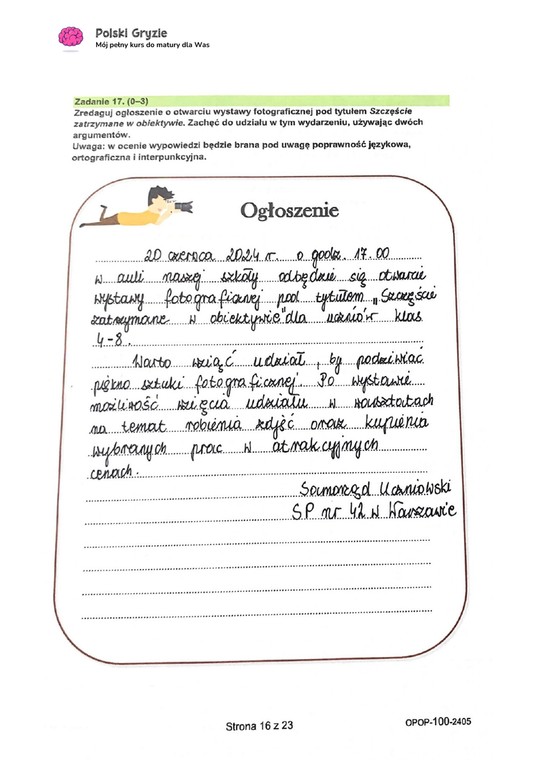 Polski Gryzie
Mój pełny kurs do matury dla Was
Zadanie 17. (0–3)
Zredaguj ogłoszenie o otwarciu wystawy fotograficznej pod tytułem Szczęście
zatrzymane w obiektywie. Zachęć do udziału w tym wydarzeniu, używając dwóch
argumentów.
Uwaga: w ocenie wypowiedzi będzie brana pod uwagę poprawność językowa,
ortograficzna i interpunkcyjna.
Ogłoszenie
20 czerwca 2024 r. o godz. 17.00
w auli naszej szkoły odbędzie się otwarcie
wystawy fotograficznej pod tytułem „Szczęście
zatrzymane w obiektywie" dla uczniów klas
4-8.
Warto wziąć udział, by podziwiać
piękno sztuki fotograficznej. Po wystawie
możliwość wzięcia udziału w warsztatach
na temat robienia zdjęć oraz kupienia
wybranych prac w atrakcyjnych
cenach.
Samorząd Uczniowski
SP nr 42 w Warszawie
Strona 16 z 23
OPOP-100-2405